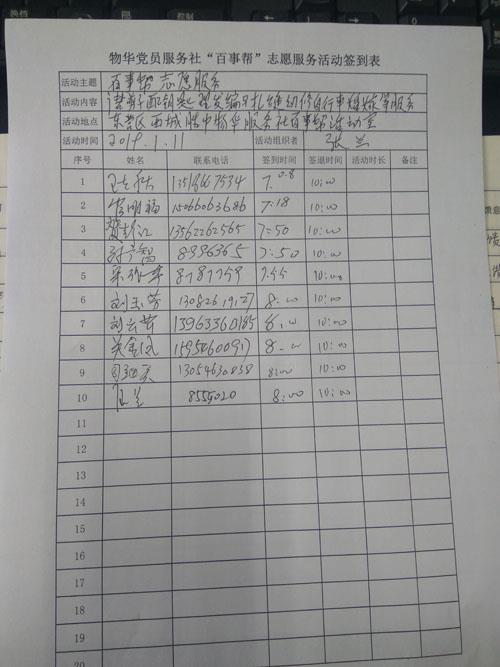 物华党员服务社“百事帮”志愿服务活动签到表
活动主题 百事帮志愿服务
活动内容 配钥匙 理发 缝纫 修自行车 等服务
活动地点 东营区西城胜中物华服务社百事帮活动室
活动时间 2019.1.11 活动组织者 张兰
序号 姓名 联系电话 签到时间 签退时间 活动时长 备注
1 7:08 10:00
2 福 15066063686 7:18 10:00
3 13562262565 7:50 10:00
4 8996365 7:50 10:00
5 8787759 7:55 10:00
6 刘玉芳 13082619127 8:00 10:00
7 刘云 13963360185 8:00 10:00
8 关金凤 15954600917 8:00 10:00
9 13054630838 8:00 10:00
10 8555020 8:00 10:00
11
12
13
14
15
16
17
18
19
20